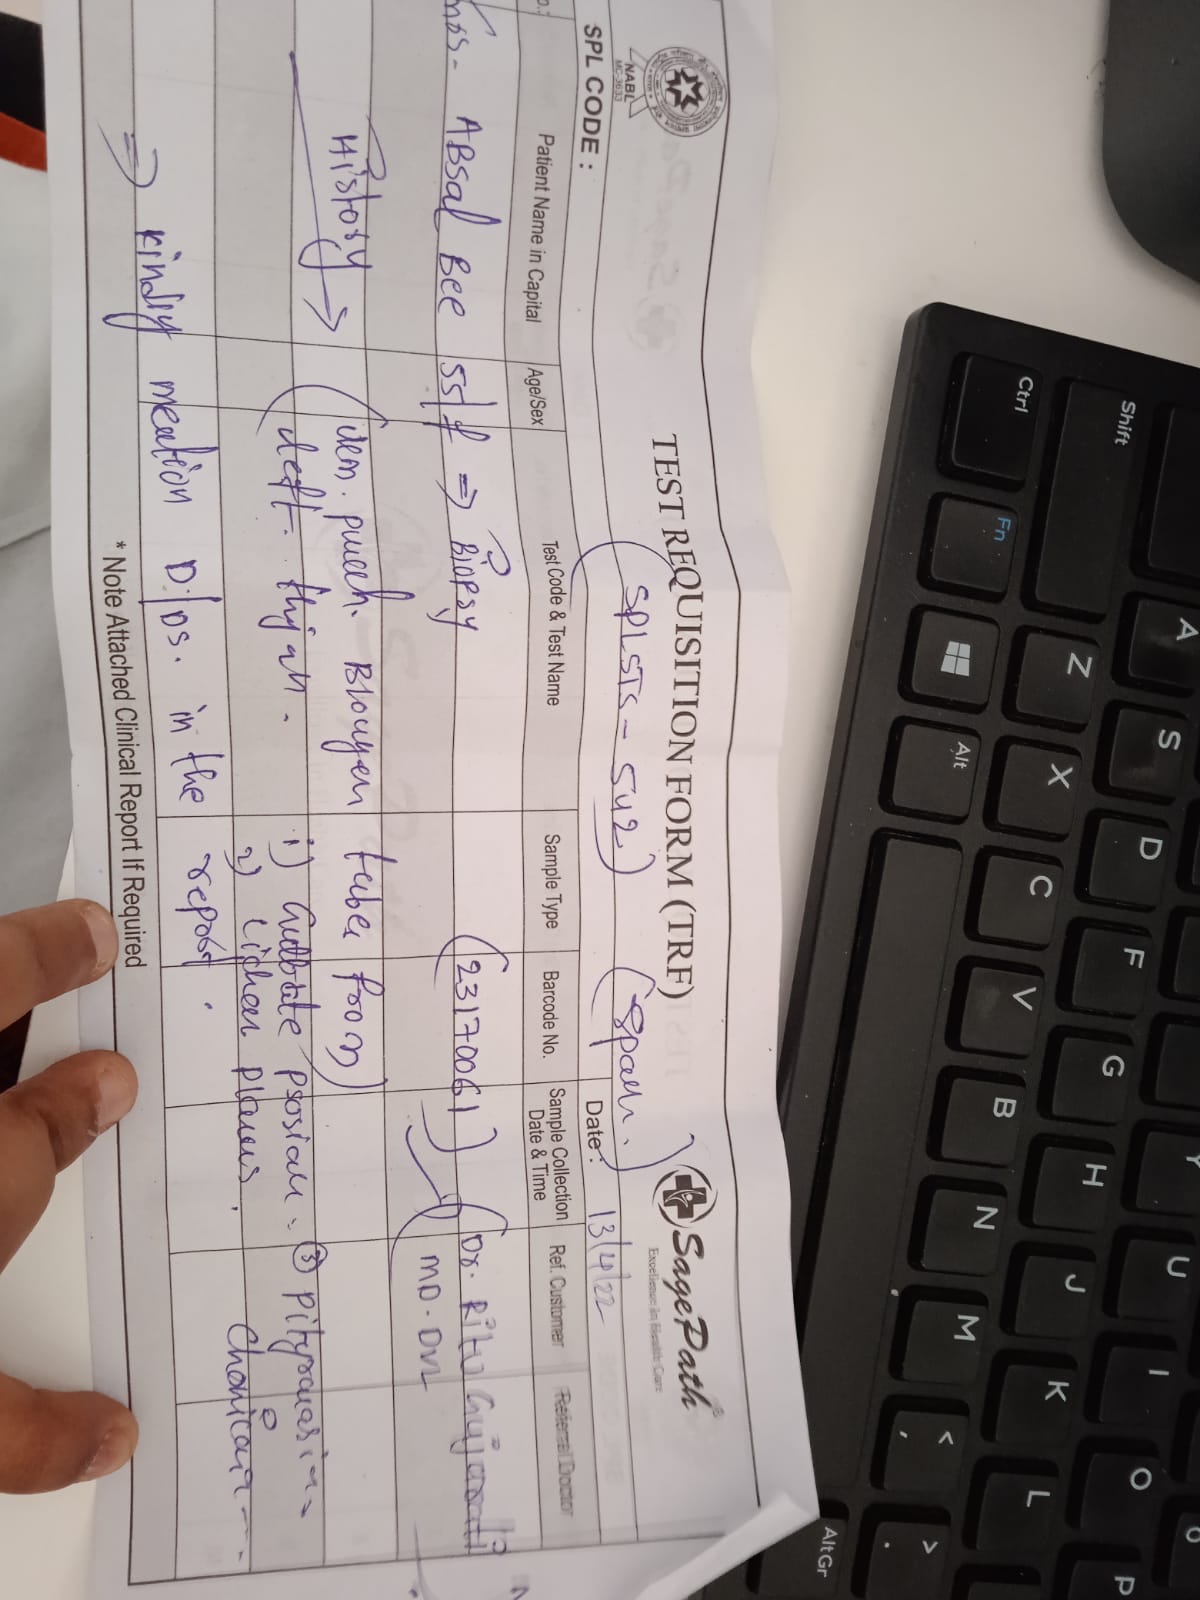 NABL
MC-3633
TEST REQUISITION FORM (TRF)
SagePath
Excellence in Health Care
SPL CODE :
(SPLSTS-542)
Date :
13/4/22
Patient Name in Capital
Age/Sex
Test Code & Test Name
Sample Type
Barcode No.
Sample Collection
Date & Time
Ref. Customer
Referral Doctor
ABSal Bee 55/f ⇒ Biopsy (23170061) (Dr. Ritu Gujarati
MD. DVL
History → punch.
1) psosian. ③
thigh.
2) Lichen planus.
⇒ kindly mention D/Ds. in the report.
* Note Attached Clinical Report If Required
Ctrl
Shift
Fn
Alt
AltGr
A
S
D
F
G
H
J
K
L
Z
X
C
V
B
N
M
Y
U
I
O
P
<
,
>
.